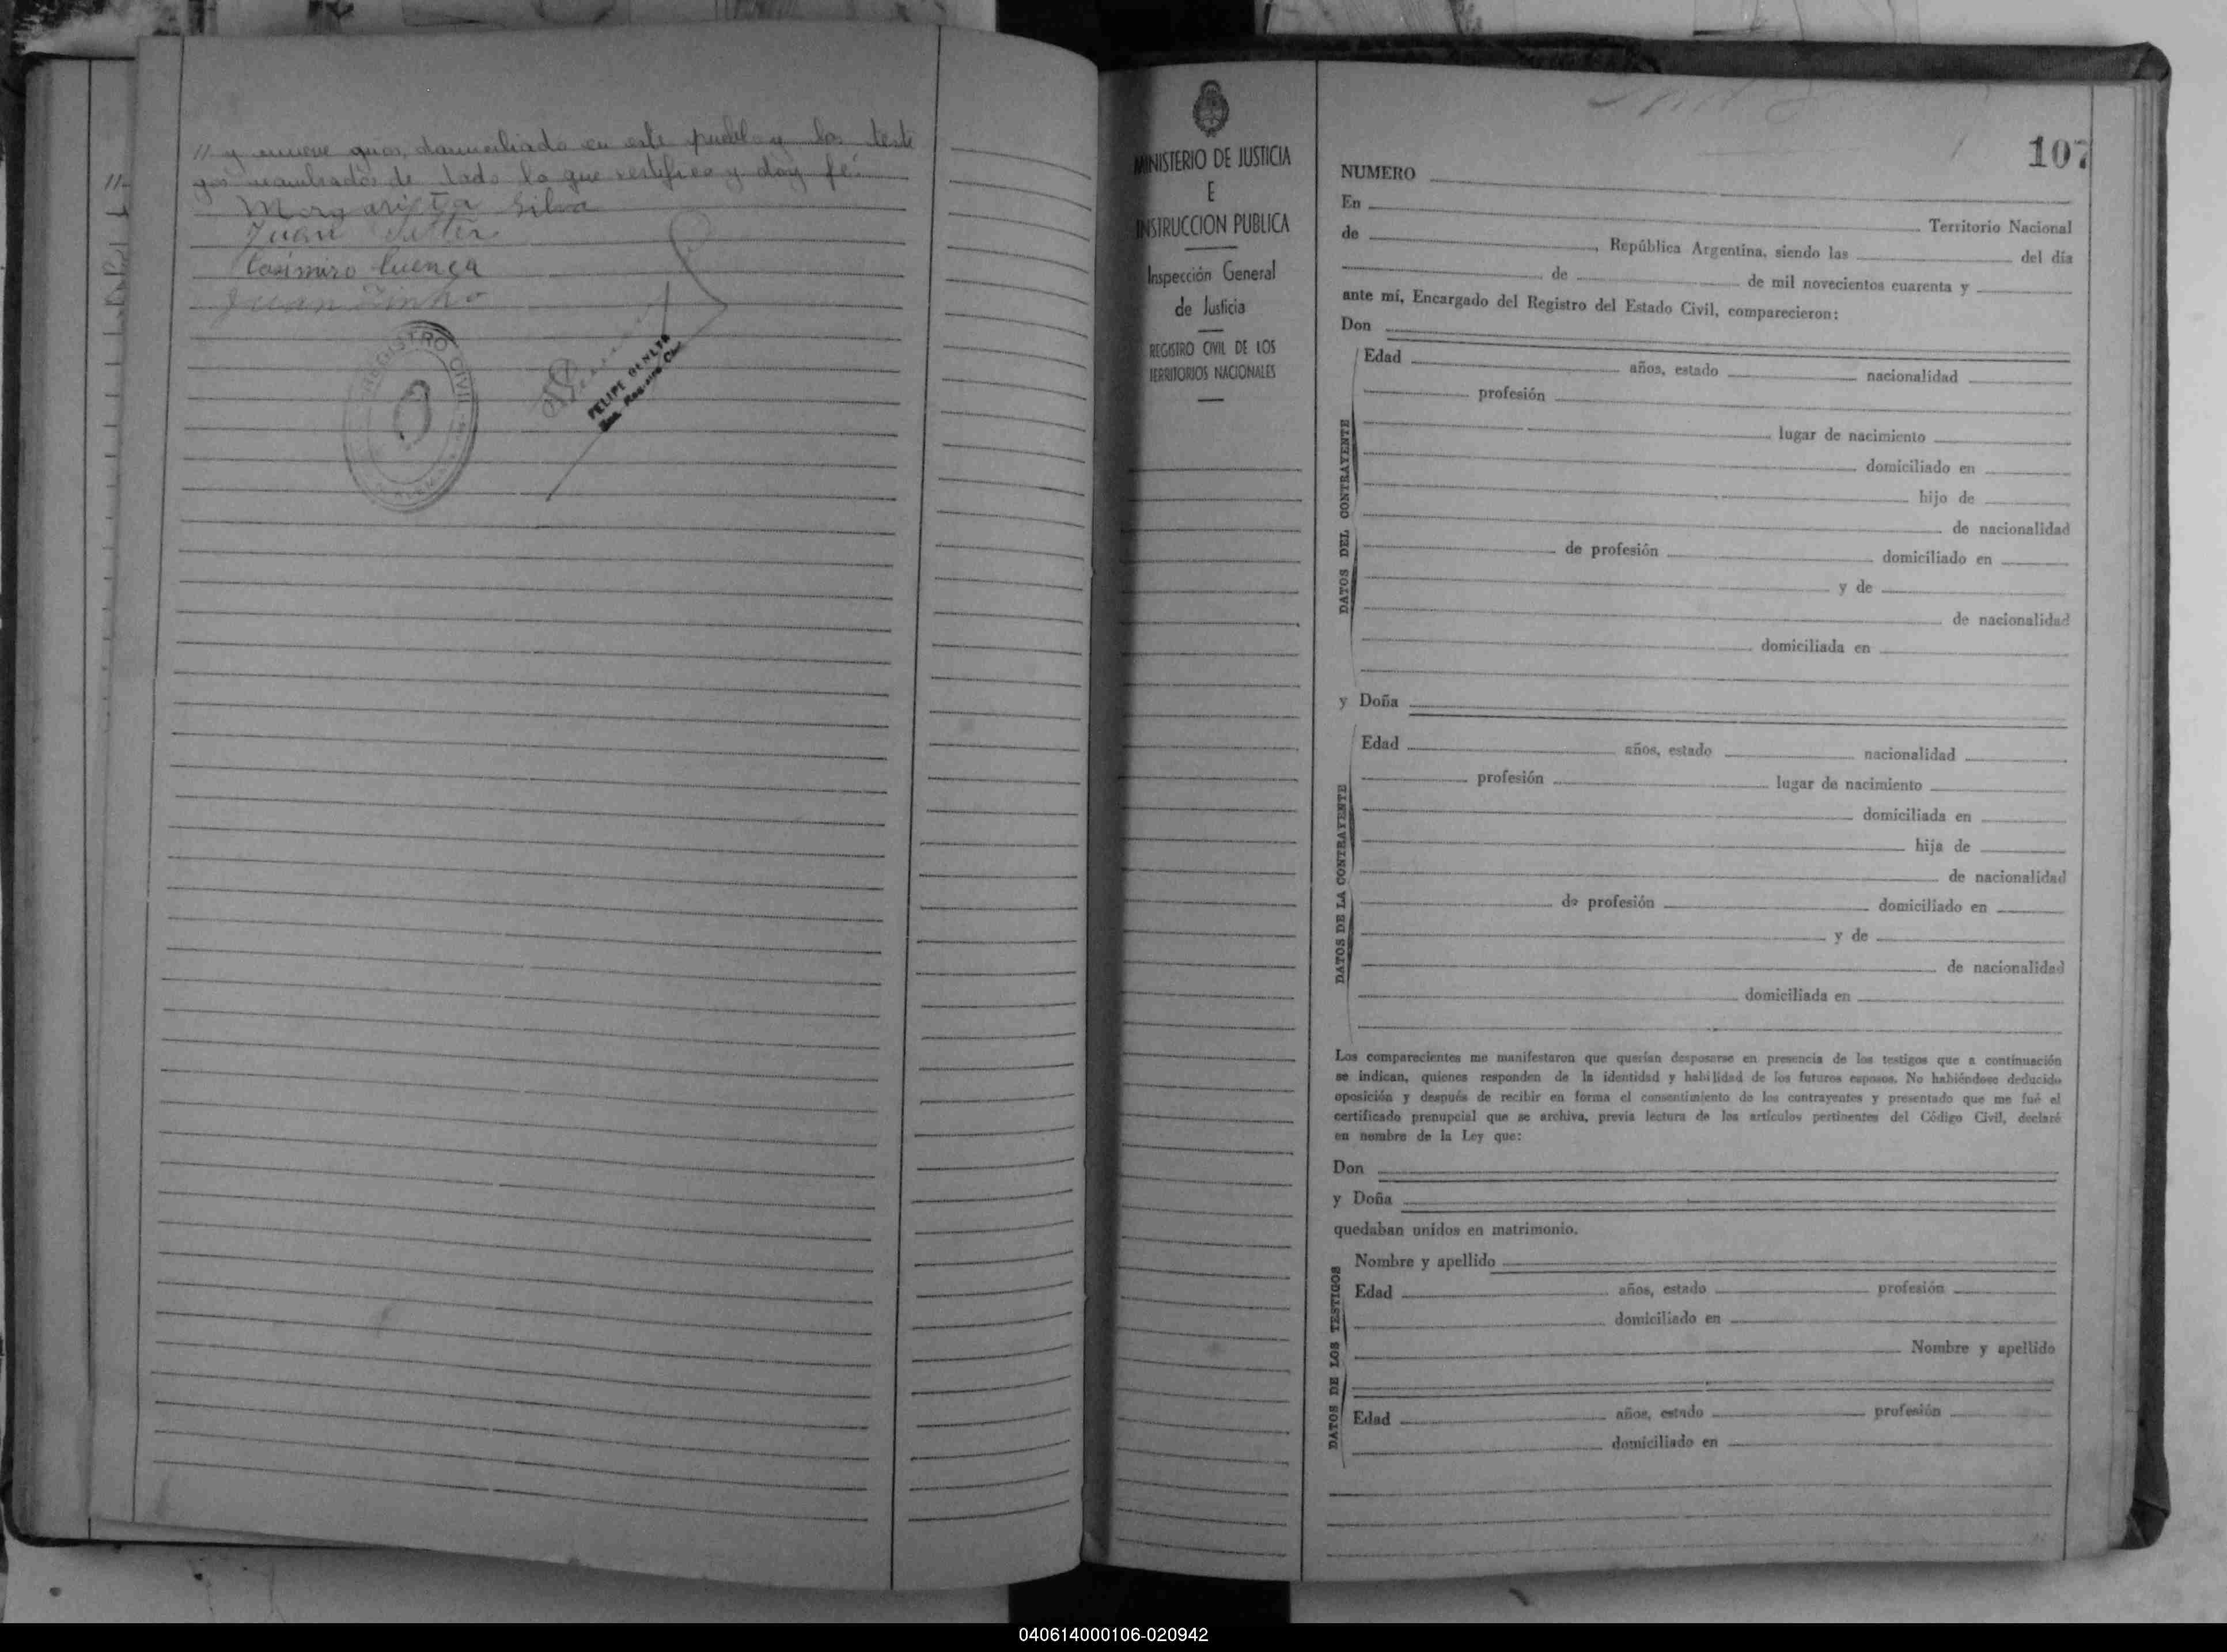 // y nueve años, domiciliado en este pueblo y los testi
gos nombrados de todo lo que certifico y doy fé.
Margarita Silva
Juan
Casimiro Cuenca
Juan
REGISTRO CIVIL
FELIPE
107
MINISTERIO DE JUSTICIA
E
INSTRUCCION PUBLICA
Inspección General
de Justicia
REGISTRO CIVIL DE LOS
TERRITORIOS NACIONALES
NUMERO
En Territorio Nacional
de República Argentina, siendo las del día
de de mil novecientos cuarenta y
ante mí, Encargado del Registro del Estado Civil, comparecieron:
Don
DATOS DEL CONTRAYENTE
Edad años, estado nacionalidad
profesión
lugar de nacimiento
domiciliado en
hijo de
de nacionalidad
de profesión domiciliado en
y de
de nacionalidad
domiciliada en
y Doña
DATOS DE LA CONTRAYENTE
Edad años, estado nacionalidad
profesión lugar de nacimiento
domiciliada en
hija de
de nacionalidad
de profesión domiciliado en
y de
de nacionalidad
domiciliada en
Los comparecientes me manifestaron que querían desposarse en presencia de los testigos que a continuación
se indican, quienes responden de la identidad y habilidad de los futuros esposos. No habiéndose deducido
oposición y después de recibir en forma el consentimiento de los contrayentes y presentado que me fué el
certificado prenupcial que se archiva, previa lectura de los artículos pertinentes del Código Civil, declaré
en nombre de la Ley que:
Don
y Doña
quedaban unidos en matrimonio.
DATOS DE LOS TESTIGOS
Nombre y apellido
Edad años, estado profesión
domiciliado en
Nombre y apellido
Edad años, estado profesión
domiciliado en
040614000106-020942